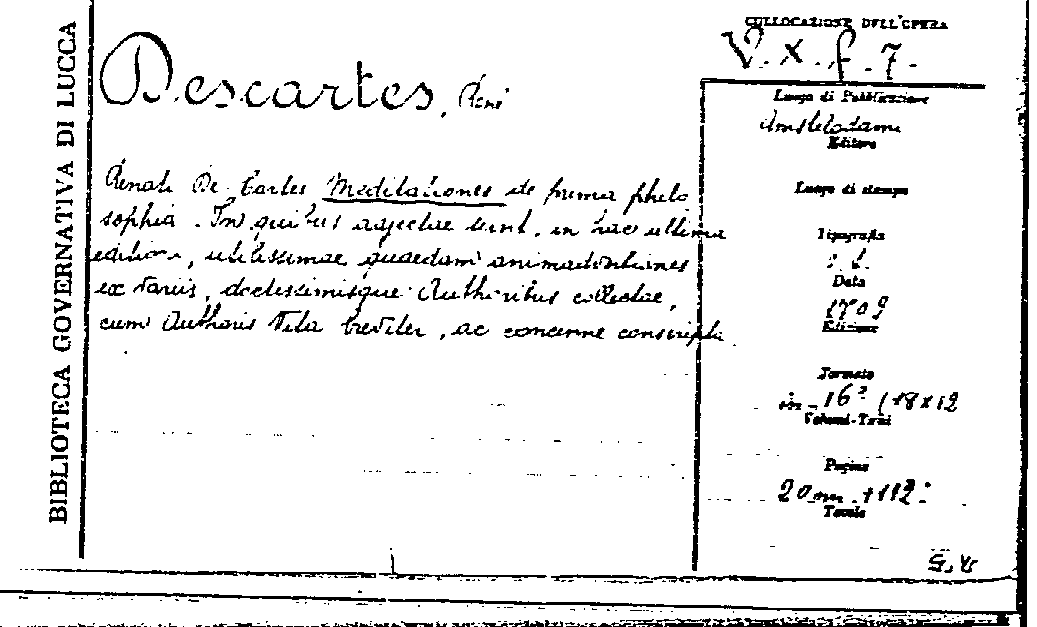 BIBLIOTECA GOVERNATIVA DI LUCCA
Descartes, René
Renati Des Cartes Meditationes de prima philo
sophia. In quibus adjectae sunt, in hac ultima
editione, utilissimae quaedam animadversiones
ex variis, doctissimisque Authoribus collectae,
cum Authoris vita breviter, ac concinne conscripta
COLLOCAZIONE DELL'OPERA
V. X. f. 7.
Luogo di Pubblicazione
Amstelodami
Editore
Luogo di stampa
Tipografia
Data
1709
Edizione
Formato
in-16° (18x12
Volumi-Tomi
Pagine
20 nn. + 112
Tavole